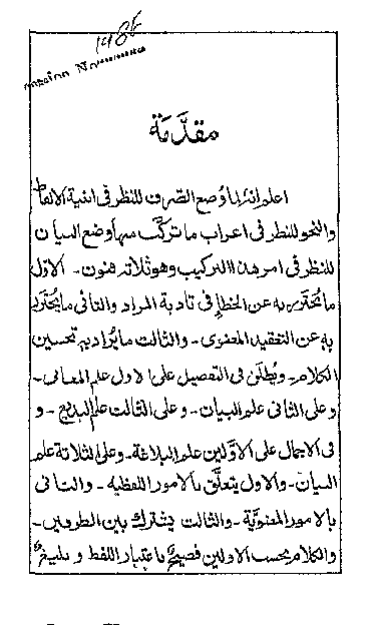 ۱۹۸۴
Accession No.
مقدَّمَة
اعلم انّه لما وُضع الصّرف للنظر فى ابنية الالفاظ
والنحو للنظر فى اعراب ما تركّب منها وضع البيان
للنظر فى امر هذا التركيب وهو ثلاثة فنون۔ الاوّل
ما يُحترز به عن الخطإ فى تادية المراد والثانى ما يُحترز
به عن التعقيد المعنوى۔ والثالث ما يُراد به تحسين
الكلام۔ ويُطلق فى التفصيل على الاول علم المعانى۔
وعلى الثانى علم البيان۔ وعلى الثالث علم البديع۔ و
فى الاجمال على الاوّلين علم البلاغة۔ وعلى الثلاثة علم
البيان۔ والاول يتعلّق بالامور اللفظية۔ والثانى
بالامور المعنويّة۔ والثالث يشترك بين الطرفين۔
والكلام بحسب الاولين فصيحٌ باعتبار اللفظ وبليغٌ